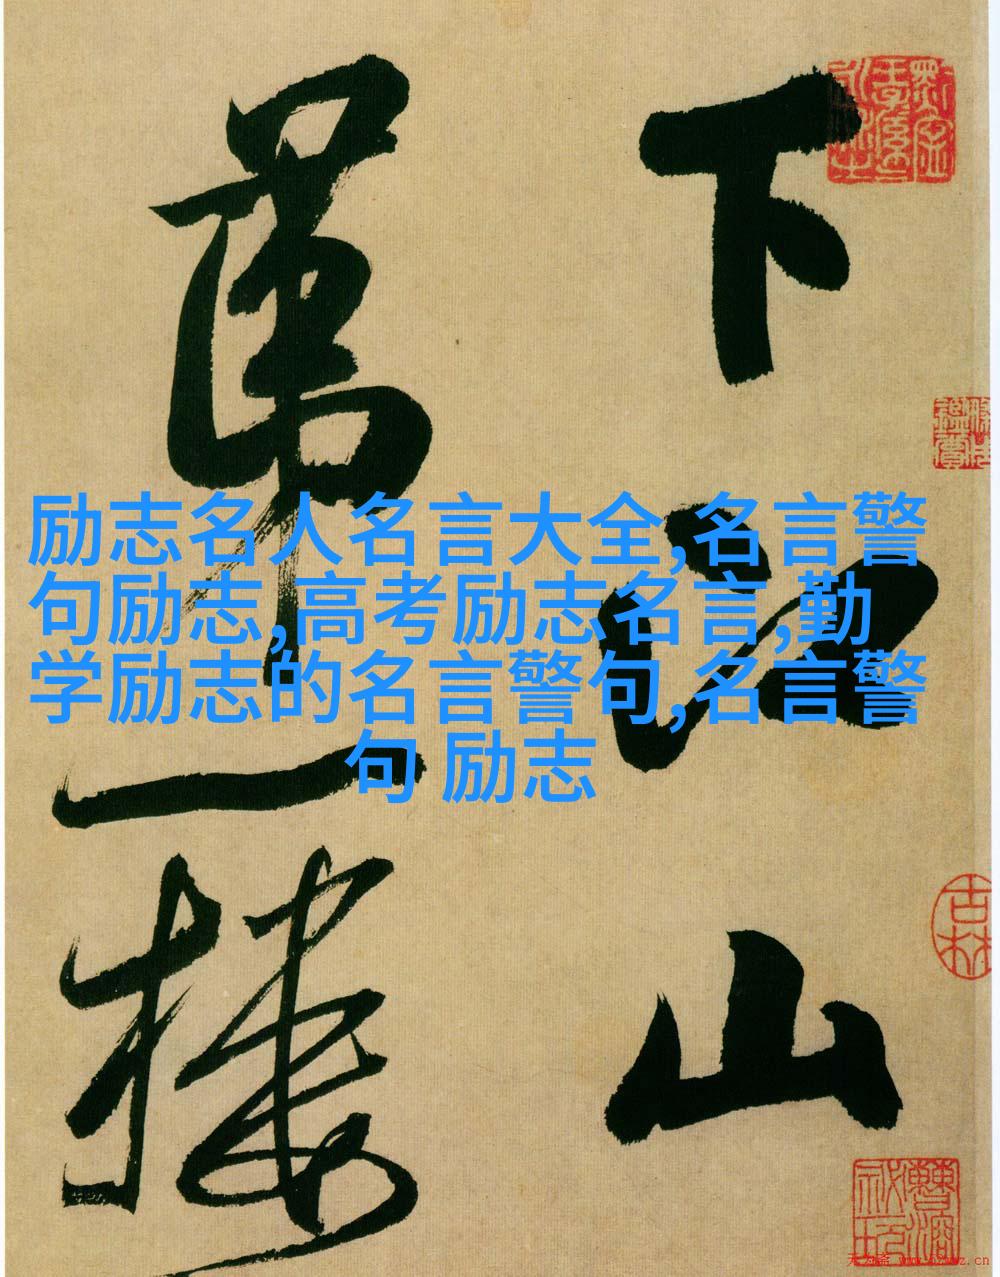 下江山
第一樓
励志名人名言大全,名言警
句励志,高考励志名言,勤
学励志的名言警句,名言警
句 励志